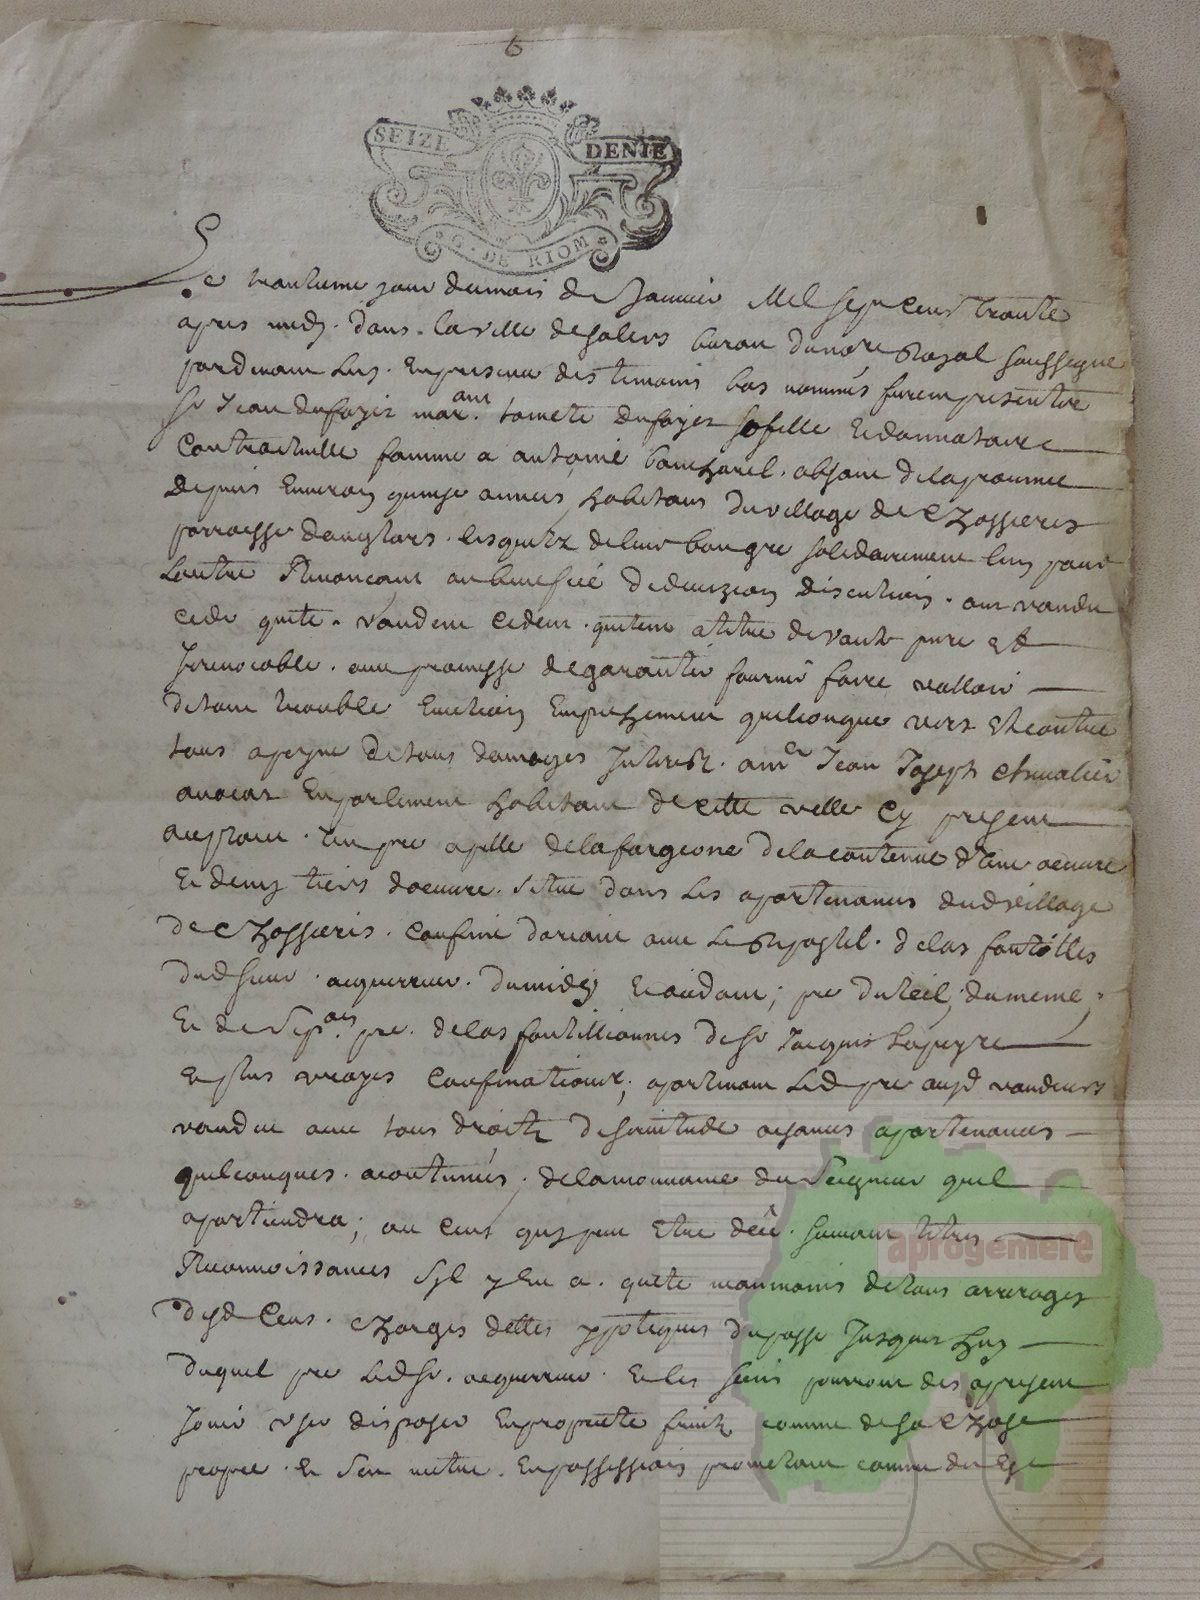 6
SEIZE DENIE
G. DE RIOM
Le trantieme jour du mois de Janvier Mil sept cens trante
apres midy. dans la ville de salers burau du no.re Royal soussigne
pardevant luy. En presence des temoins bas nommés furent presentz
sr Jean dufayet mar. ant tomete dufayet sa fille Et donnataire
Contractuelle famme a antoine bancharel. absant de la province
depuis Environ quinse annees habitans du village de Chossieres
parroesse danglars. lesquelz de leur bon gre solidairement lun pour
Lautre Renonçant au benefice de division discution. ont vandu
cede quite. vandent cedent. quitent a titre de vante pure Et
Jrrevocable. avec promesse de garantir fournir faire valloir
de tout trouble Eviction Empechement quelconque vers Et contre
tous a peyne de tous damages Jnteretz. a mr. Jean Joseph chevalier
avocat En parlement habitant de cette ville Cy present
acceptant. Un pre apelle de la fargeone de la contenue d'une oeuvre
Et demy tiers doeuvre. situe dans les apartenances dud village
de Chossieres. confine dorient avec le Repastel. de las fontilles
dud sieur acquerreur. du midy Et occidant; pre du teil, du meme;
Et de Sep.on pre. de las fontillounes de sr Jacques Lapeyre
Et plus vrayes confinations; apartenant led pre auxd vandeurs
vandu avec tous droitz de servitude aysances apartenances
quelconques. acoutumées; de la mouvance du Seigneur quil
apartiendra; au cens quy peut Etre deû. suivant titres
Reconnoissances Syl y En a. quite neanmoins de tous arrerages
desd Cens. charges dettes ypoteques du passe Jusques huy
duquel pre led sr. acquerreur. Et les siens pourront des apresent
Jouir user disposer En propriete fruitz comme de sa chose
propre. Et s'en metre. En possession prometant comme de Ese
aprogemere